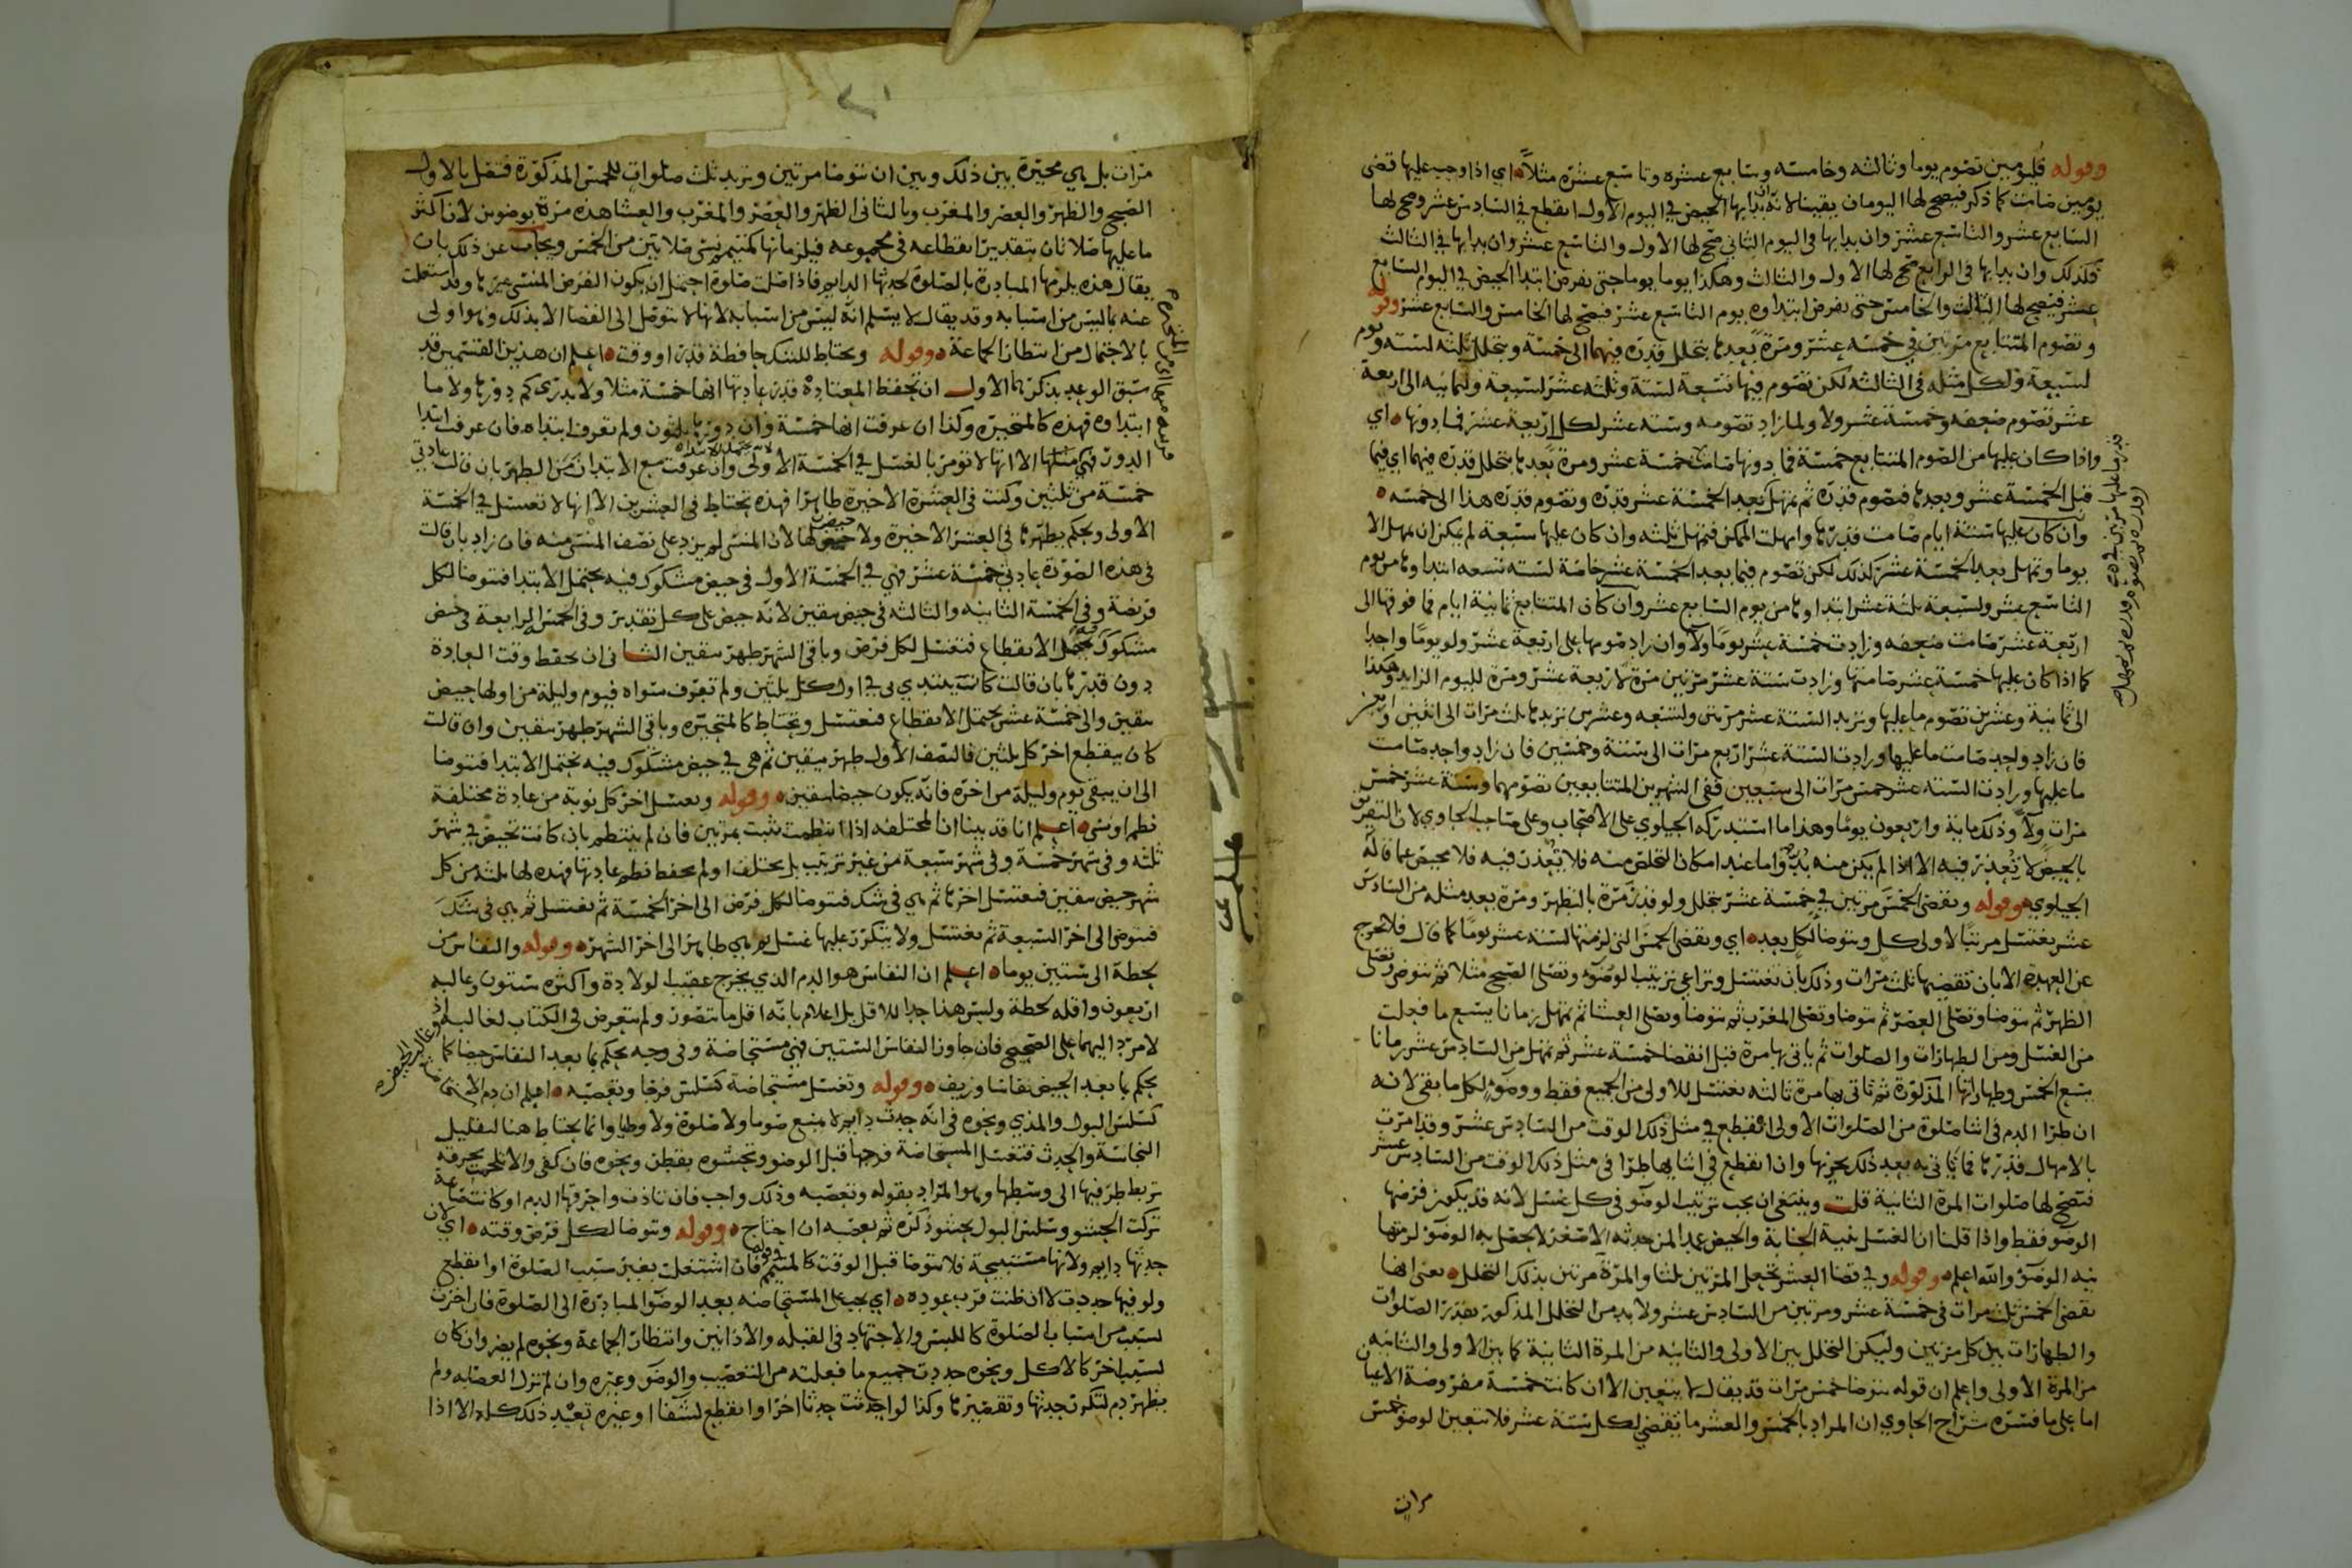 وقوله فليومين تصوم يوما وثالثه وخامسه وسابع عشره وتاسع عشره مثلا اي اذا وجب عليها قضى
يومين صامت كما ذكر فيصح لها اليومان يقينا لانه ان بدابها الحيض في اليوم الاول انقطع في السادس عشر وصح لها
السابع عشر والتاسع عشر وان بدابها في اليوم الثاني صح لها الاول والتاسع عشر وان بدابها في الثالث
فكذلك وان بدابها في الرابع صح لها الاول والثالث وهكذا يوما يوما حتى نفرض ابتدا الحيض في اليوم السابع
عشر فيصح لها الثالث والخامس حتى نفرض ابتداوه يوم التاسع عشر فيصح لها الخامس والسابع عشر وقوله
وتصوم المتتابع مرتين في خمسة عشر ومرة بعدها بتخلل قدره فيهما الى خمسة وبتخلل ثلثه لستة ويوم
لسبعة ولكل مثله في الثالثه لكن تصوم فيها تسعة لستة وثلثه عشر لسبعة ولثمانيه الى اربعة
عشر تصوم ضعفه وخمسة عشر ولا ولما زاد تصومه وستة عشر لكل اربعة عشر فما دونها اي
واذا كان عليها من الصوم المتتابع خمسة فما دونها صامت خمسة عشر ومرة بعدها بتخلل قدره فيهما اي فيما
قبل الخمسة عشر وبعدها فتصوم قدره ثم تمهل بعد الخمسة عشر قدره وتصوم قدره هذا الى خمسه
وان كان عليها ستة ايام صامت قدرها وامهلت الممكن فتمهل ثلثه وان كان عليها سبعة لم يمكن ان تمهل الا
يوما وتمهل بعد الخمسة عشر كذلك لكن تصوم فيما بعد الخمسة عشر خاصة لستة تسعه ابتداوها من يوم
التاسع عشر ولسبعة ثلثة عشر ابتداوها من يوم السابع عشر وان كان المتتابع ثمانية ايام فما فوقها الى
اربعة عشر صامت ضعفه وزادت خمسة عشر يوما ولا وان زاد صومها على اربعة عشر ولو يوما واحدا
كما اذا كان عليها خمسة عشر صامتها وزادت ستة عشر مرتين مرة لاربعة عشر ومرة لليوم الزايد وهكذا
الى ثمانية وعشرين تصوم ما عليها وتزيد الستة عشر مرتين ولتسعه وعشرين تزيدها ثلث مرات الى اثنين واربعين
فان زاد واحد صامت ما عليها وزادت الستة عشر اربع مرات الى ستة وخمسين فان زاد واحد صامت
ما عليها وزادت الستة عشر خمس مرات الى سبعين ففي الشهرين المتتابعين تصومهما وستة عشر خمس
مرات ولا وذلك ماية واربعون يوما وهذا ما استدركه الجيلوي على الاصحاب وعلى صاحب الحاوي لان التفريق
بالحيض لا تعذر فيه الا اذا لم يكن منه بد واما عند امكان التخلص منه فلا تعذر فيه فلا محيض عما قاله
الجيلوي وقوله وتقضي الخمس مرتين في خمسة عشر بتخلل ولو قدر مرة بالتطهر ومرة بعد مثله من السادس
عشر بغسل مرتبا لاولى كل وبتوضا لكل بعد اي وتقضى الخمس التي لزمتها لستة عشر يوما كما قال فلا تخرج
عن العهدة الا بان تقضيها ثلث مرات وذلك بان تغتسل وتراعي ترتيب الوضوء وتصلى الصبح مثلا ثم تتوضا وتصلى
الظهر ثم تتوضا وتصلى العصر ثم تتوضا وتصلى المغرب ثم تتوضا وتصلى العشا ثم تمهل زمانا يسع ما فعلت
من الغسل ومن الطهارات والصلوات ثم ياتي بها مرة قبل انقضا خمسة عشر ثم تمهل من السادس عشر زمانا
يسع الخمس وطهاراتها المذكورة ثم تاتي بها مرة ثالثه بغسل للاولى من الجميع فقط ووضوء لكل ما بقي لانه
ان طرا الدم في اثنا صلوة من الصلوات الاولى انقطع في مثل ذلك الوقت من السادس عشر وقد امرت
بالامهال قدرها فما تاتي به بعد ذلك يجزيها وان انقطع في اثنايها طرا في مثل ذلك الوقت من السادس عشر
فتصح لها صلوات المرة الثانية قلت وينبغي ان يجب ترتيب الوضو في كل غسل لانه قد يكون فرضها
الوضو فقط واذا قلنا ان الغسل بنية الجنابة والحيض عمدا لمن حدثه الاصغر لا يحصل به الوضو لزمتها
نية الوضو والله اعلم وقوله وفي قضا العشر تجعل المرتين ثلثا والمرة مرتين بذلك التخلل يعني انها
تقضى الخمس ثلث مرات في خمسة عشر ومرتين من السادس عشر ولا بد من التخلل المذكور بقدر الصلوات
والطهارات بين كل مرتين وليكن التخلل بين الاولى والثانيه من المرة الثانية كما بين الاولى والثانيه
من المرة الاولى واعلم ان قوله تتوضا خمس مرات قد يقال لا يتعين الا ان كانت خمسة مفروضة الاعيان
اما على ما فسره شراح الحاوي ان المراد بالخمس والعشر ما تقضي لكل ستة عشر فلا يتعين الوضو خمس
مرات
مرات بل هي مخيرة بين ذلك وبين ان تتوضا مرتين وتزيد ثلث صلوات للخمس المذكورة فتصل بالاول
الصبح والظهر والعصر والمغرب وبالثاني الظهر والعصر والمغرب والعشا هذه مرة بوضوين لان اكثر
ما عليها صلاتان بتقدير انقطاعه في مجموعه فيلزمانها كمتيمم نسي صلاتين من الخمس ويجاب عن ذلك بان
يقال هذه يلزمها المبادرة بالصلوة لحدثها الدايم فاذا صلت صلوة احتمل ان يكون الفرض المنسي غيرها وقد اشتغلت
عنه بما ليس من اسبابه وقد يقال لا يسلم انه ليس من اسبابه لانها لا تتوصل الى القضا الا بذلك وهوا ولى
بالاحتمال من انتظار الجماعة وقوله ويحتاط للشك حافظة قدر او وقت اعلم ان هذين القسمين قد
سبق الوعد بذكرهما الاول ان تحفظ المعتادة قدر عادتها انها خمسة مثلا ولا تدرى كم دورها ولا ما
ابتداوه فهذه كالمتحيرة وكذا ان عرفت انها خمسة وان دورها ثلثون ولم تعرف ابتداه فان عرفت ابتدا
الدور فهي مثلها الا انها لا تومر بالغسل في الخمسة الاولى وان عرفت مع الابتدا زمن الطهر بان قالت عادتي
خمسة من ثلثين وكنت في العشرة الاخيرة طاهرا فهذه تحتاط في العشرين الا انها لا تغتسل في الخمسة
الاولى ويحكم بطهرها في العشر الاخيرة ولا حيض لها لان المنسى لم يزد على نصف المنسى منه فان زاد بان قالت
في هذه الصورة عادتي خمسة عشر فهي في الخمسة الاول في حيض مشكوك فيه يحتمل الابتدا فتتوضا لكل
فريضة وفي الخمسة الثانيه والثالثه في حيض بيقين لانه حيض على كل تقدير وفي الخمس الرابعة في حيض
مشكوك يحتمل الانقطاع فتغتسل لكل فرض وباقي الشهر طهر بيقين الثاني ان تحفظ وقت العادة
دون قدرها بان قالت كانت يبتدي بي في اول كل ثلثين ولم تعرف سواه فيوم وليلة من اولها حيض
بيقين والى خمسة عشر يحتمل الانقطاع فتغتسل وتحتاط كالمتحيره وباقي الشهر طهر بيقين وان قالت
كان ينقطع اخر كل ثلثين فالنصف الاول طهر بيقين ثم هي في حيض مشكوك فيه تحتمل الابتدا فتتوضا
الى ان يبقى يوم وليلة من اخره فانه يكون حيضا بيقين وقوله وتغتسل اخر كل نوبة من عادة مختلفة
نظم او نسي اعلم انا قد بينا ان المختلفه اذا انتظمت تثبت بمرتين فان لم ينتظم بان كانت تحيض في شهر
ثلثه وفي شهر خمسة وفي شهر سبعة من غير ترتيب بل يختلف او لم تحفظ نظم عادتها فهذه لها ثلثه من كل
شهر حيض بيقين فتغتسل اخرها ثم هي في شك فتتوضا لكل فرض الى اخر الخمسة ثم تغتسل ثم هي في شك
فتتوضى الى اخر السبعة ثم تغتسل ولا يتكرر عليها غسل ثم هي طاهر الى اخر الشهر وقوله والنفاس من
لحظة الى ستين يوما اعلم ان النفاس هو الدم الذي يخرج عقيب الولادة واكثره ستون وغالبه
اربعون واقله لحظة وليس هذا حدا للاقل بل اعلام بانه اقل ما يتصور ولم يتعرض في الكتاب لغالبه اذ
لا مرد اليهما على الصحيح فان جاوز النفاس الستين فهي مستحاضة وفي وجه يحكم بما بعد النفاس حيضا كما
يحكم بما بعد الحيض نفاسا وزيف وقوله وتغسل مستحاضة كسلس فرجا وتعصبه اعلم ان دم الاستحاضة
كسلس البول والمذي ونحوه في انه حدث دايم لا يمنع صوما ولا صلوة ولا وطيا وانما يحتاط هنا لتقليل
النجاسة والحدث فتغسل المستحاضة فرجها قبل الوضو وتحشوه بقطن ونحوه فان كفى والا تلجمت بخرقة
تربط طرفيها الى وسطها وهو المراد بقوله وتعصبه وذلك واجب فان تاذت واحرقها الدم او كانت صايمة
تركت الحشو وسلس البول يحشو ذكره ثم يعصبه ان احتاج وقوله وتتوضا لكل فرض وقته اي لان
حدثها دايم ولانها مستبيحة فلا تتوضا قبل الوقت كالمتيمم فان اشتغلت بغير سبب الصلوة او انقطع
ولو فيها جددت لا ان ظنت قرب عوده اي يجب على المستحاضه بعد الوضو المبادرة الى الصلوة فان اخرت
لسبب من اسباب الصلوة كاللبس والاجتهاد في القبله والاذانين وانتظار الجماعة ونحوه لم يضر وان كان
لسبب اخر كالاكل ونحوه جددت جميع ما فعلته من التعصيب والوضو وغيره وان لم تزل العصابه ولم
يظهر دم لتكرر حدثها وتقصيرها وكذا لو احدثت حدثا اخر او انقطع لشفا او غيره تعيد ذلك كله الا اذا